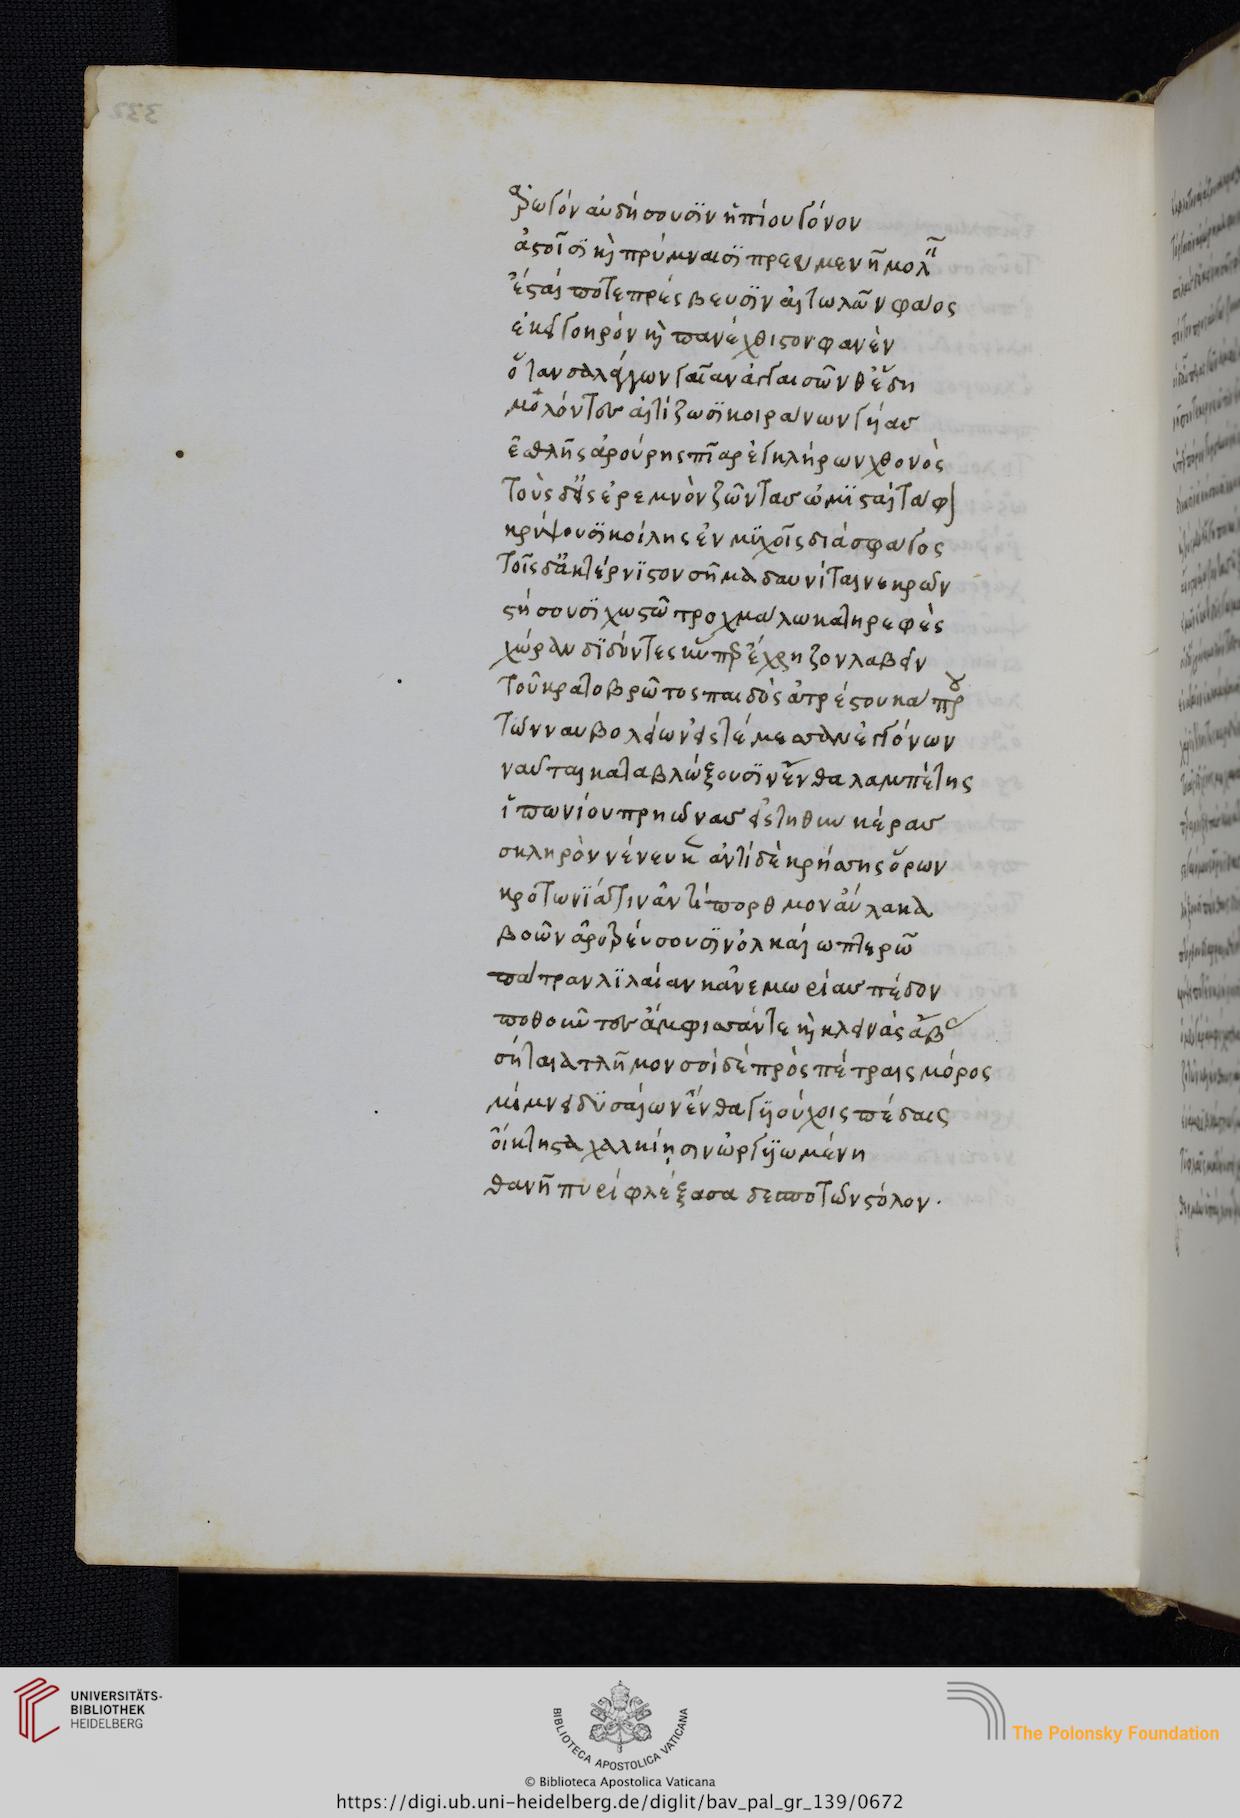 332
ἀρωγὸν αὐδήσουσιν ἠπίου γόνον
ἀστοῖσι καὶ ποίμναισι πρευμενῆ μολεῖν
ἔσται ποτὲ πρέσβευσιν αἰτωλῶν φάος
ἐκεῖ γοηρὸν καὶ πανέχθιστον φανὲν
ὅταν σαλάγγων γαῖαν ἀγγαίσων θ᾽ ἕδη
μολόντες αἰτίζωσι κοιράνων γύας
ἐσθλῆς ἀρούρης πῖαρ ἔγκληρον χθονὸς
τοὺς δ᾽ εἰς ἐρεμνὸν ζῶντας ὠμησταὶ τάφον
κρύψουσι κοίλης ἐν μυχοῖς διασφάγος
τοῖς δ᾽ ἀκτέριστον σῆμα δαυνῖται νεκρῶν
στήσουσι χωστῷ τροχμάλῳ κατηρεφὲς
χώραν διδόντες ἥνπερ ἔχρῃζον λαβεῖν
τοῦ κρατοβρῶτος παιδὸς ἀτρέστου κάπρου
τῶν ναυβολείων εἰς τέμεσσαν ἐγγόνων
ναῦται καταβλώξουσιν ἔνθα λαμπέτης
ἱππωνίου πρηῶνος εἰς τηθὺν κέρας
σκληρὸν νένευκεν ἀντὶ δὲ κρίσης ὅρων
κροτωνιᾶτιν ἀντίπορθμον αὔλακα
βοῶν ἀροτρεύσουσιν ὁλκαίῳ πτερῷ
πάτραν λιλαίαν κἀνεμωρείας πέδον
ποθοῦντες ἄμφισσάν τε καὶ κλεινὰς ἄβας
σήταια τλῆμον σοὶ δὲ πρὸς πέτραις μόρος
μίμνει δυσαίων ἔνθα γυιούχοις πέδαις
οἰκτίστα χαλκείῃσιν ὠργυιωμένη
θανῇ πυρὶ φλέξασα δεσποτῶν στόλον.
UNIVERSITÄTS-
BIBLIOTHEK
HEIDELBERG
BIBLIOTECA APOSTOLICA VATICANA
The Polonsky Foundation
© Biblioteca Apostolica Vaticana
https://digi.ub.uni-heidelberg.de/diglit/bav_pal_gr_139/0672